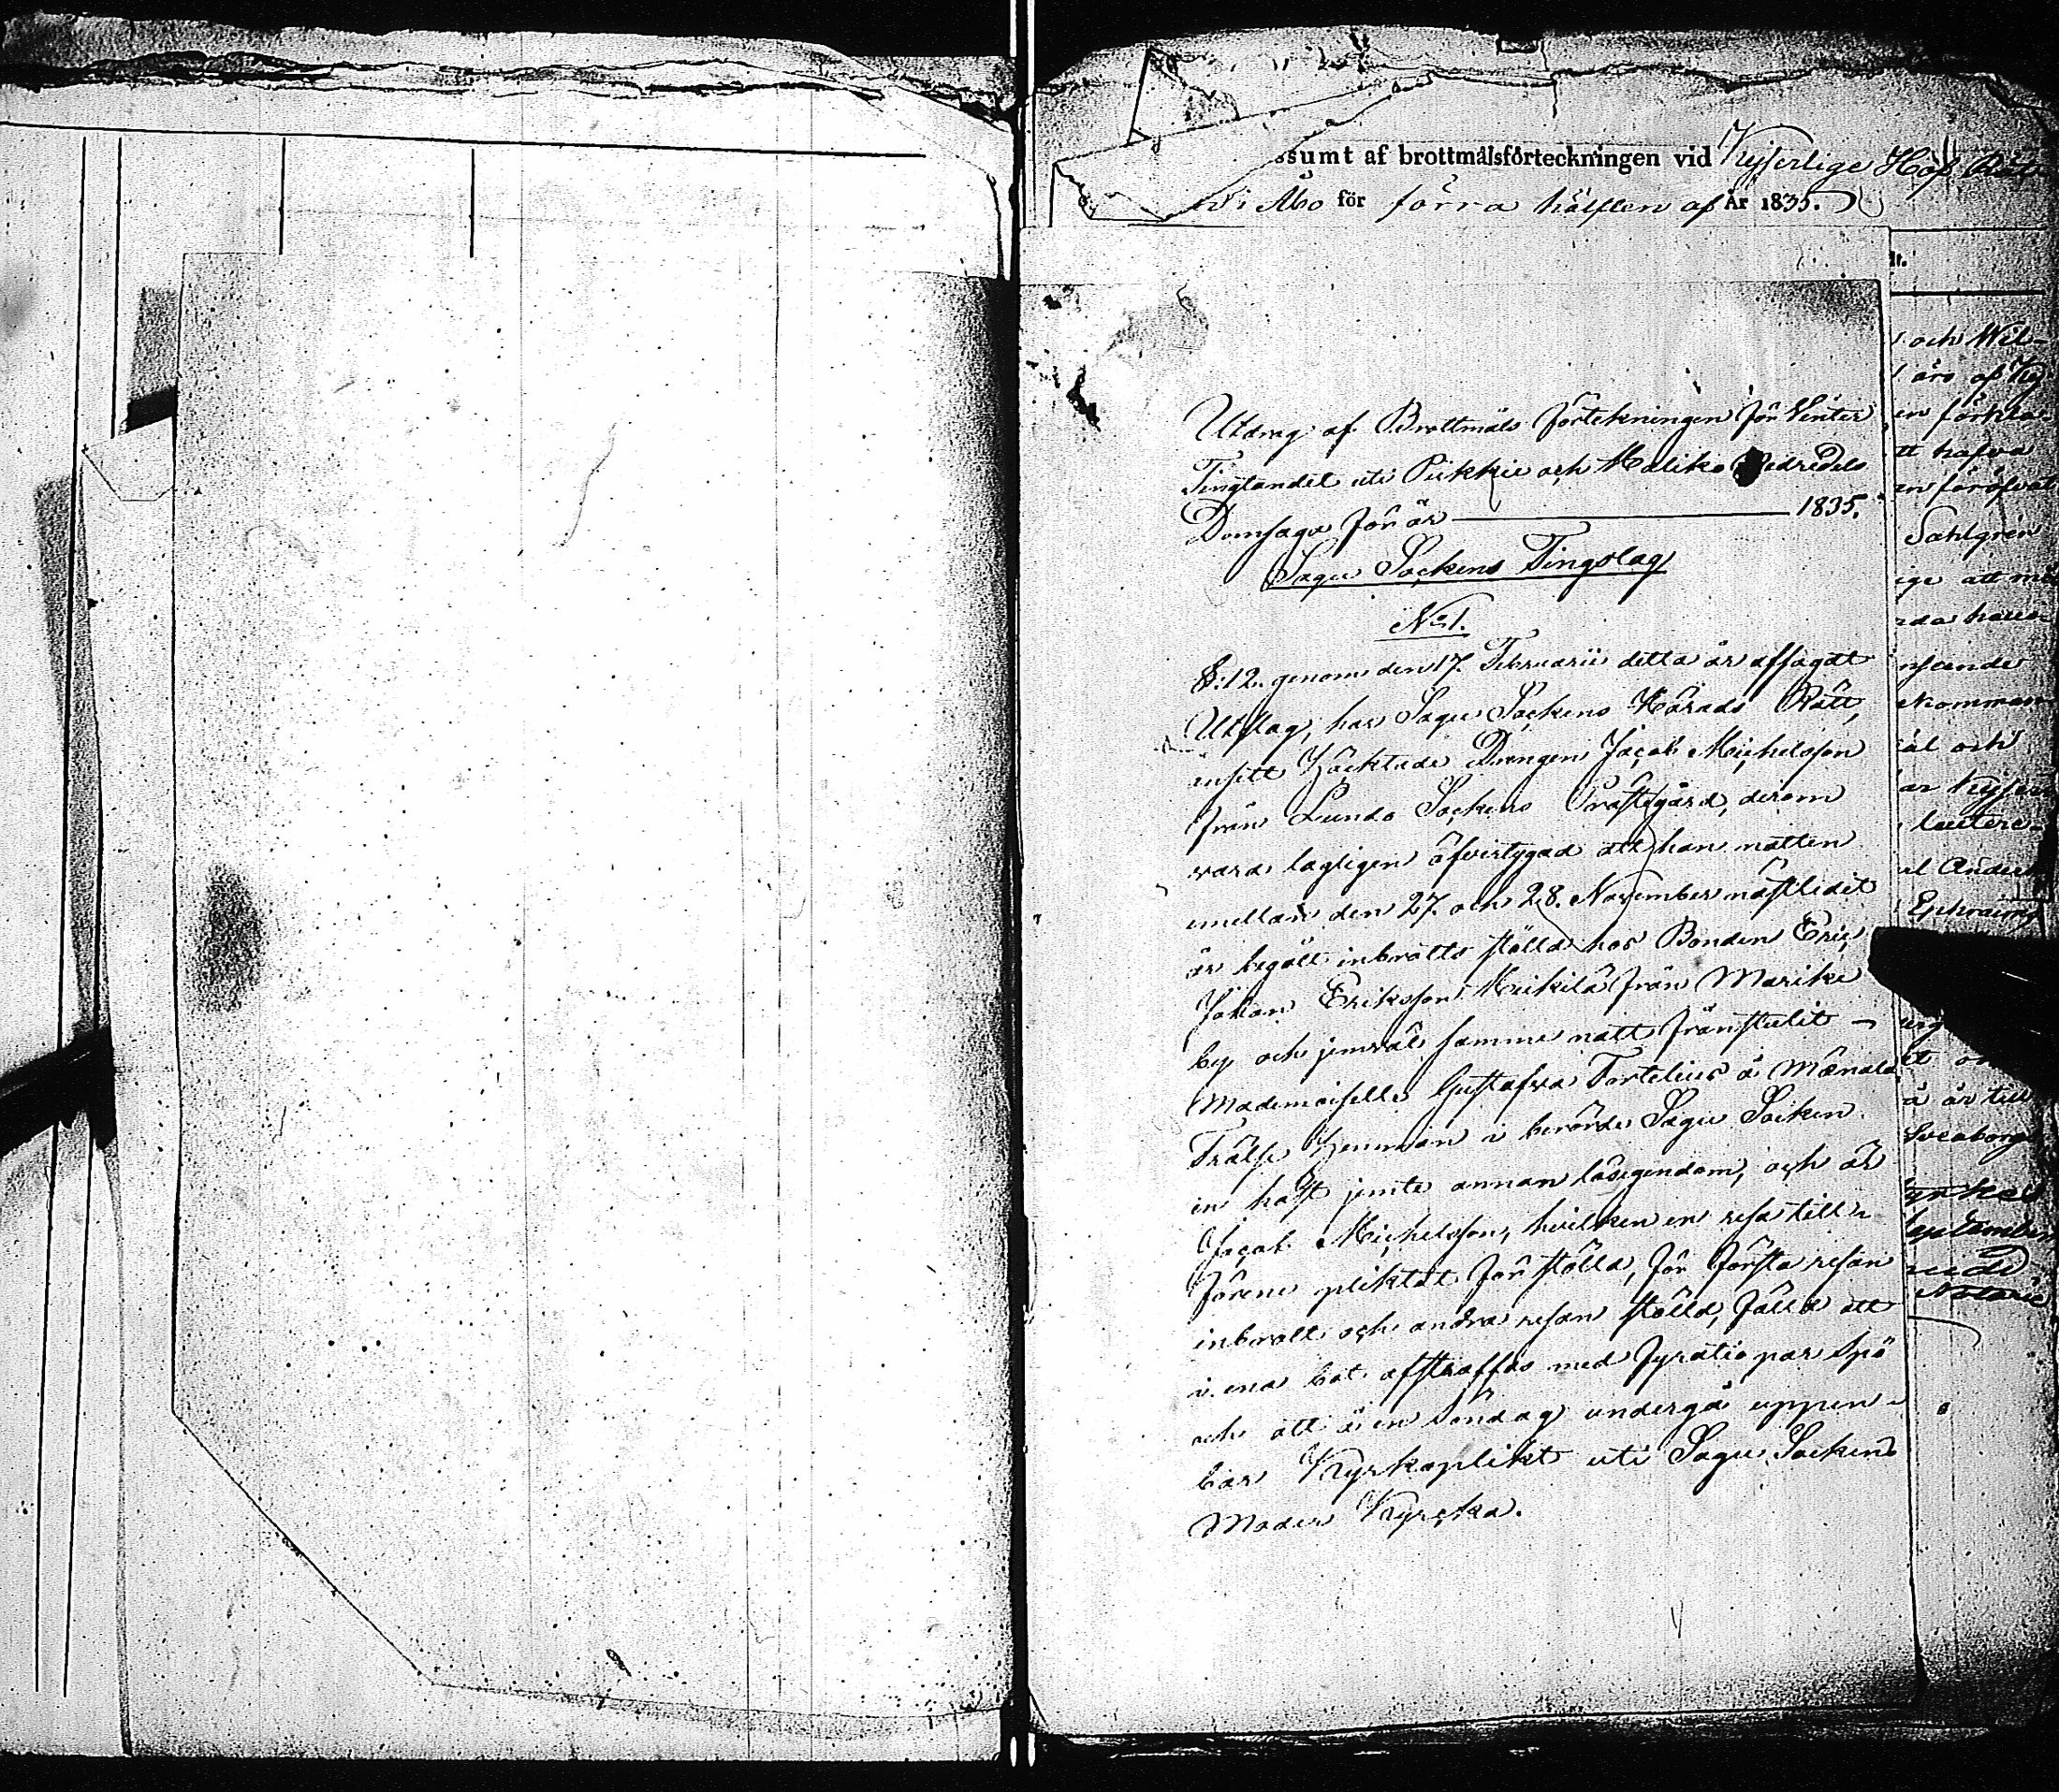 ssumt af brottmålsförteckningen vid Kejserlige Hof Rät
i Åbo för förra hälften af År 1835.
Utdrag af Brottmåls förtekningen för Vinter
Tingtandet uti Piikkie och Haliko Nedredels
Domsaga för år 1835.
Sagu Sockens Tingslag
No 1.
§. 12. genom den 17. Februarii detta år afsagdt
Utslag, har Sagu Sockens Härads Rätt,
ansett Häcktade Drengen Jacob Michelsson
från Lundo Sockens Prästgård, derom
vara lagligen öfvertygad att han natten
emellan den 27. och 28. November nästledit
år begått inbrotts stöld hos Bonden Eric
Johan Eriksson Heikilä från Marike
by och jemväl samma natt frånstulit
Mademoiselle Gustafva Fortelius å
Frälse Hemman i berörde Sagu Socken
en häst jemte annan lösegendom, och är
Jacob Michelsson, hvilken en resa till-
förene pliktat för stöld, för första resan
inbrott och andra resan stöld, fäld att
i ena bot afstraffas med fyratio par Spö
och att å en Söndag undergå uppen-
bar Kyrkoplikt uti Sagu Sockens
Moder Kyrcka.
och Wil-
äro af
en förkla
tt hafva
en föröfvat
Sahlgren
ige att
nseende
ål och
Ephraim
å är till
Sveaborg
September
Notarie